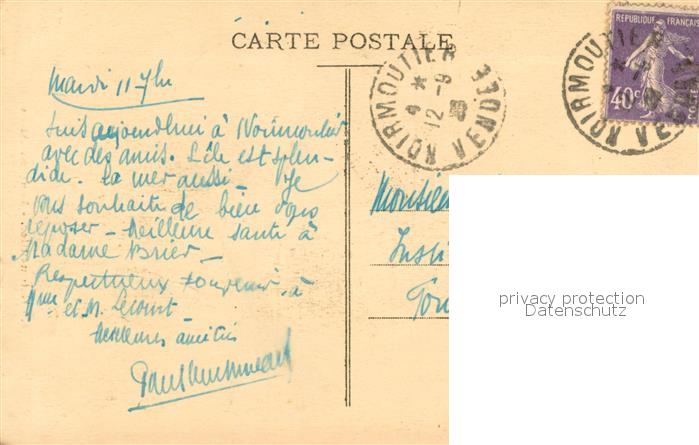 CARTE POSTALE
REPUBLIQUE FRANÇAISE
40c
POSTES
NOIRMOUTIER
* 4
12-9
VENDEE
NOIRMOUTIER
VENDEE
Mardi 11 7bre
Suis aujourd'hui à Noirmoutier
avec des amis. L'île est splen-
dide. La mer aussi - Je
vous souhaite de bien vous
reposer - Meilleure santé à
Madame Brier -
Respectueux souvenir à
Mme et M.
Meilleures amitiés
Paul
Monsieur
Insti
privacy protection
Datenschutz